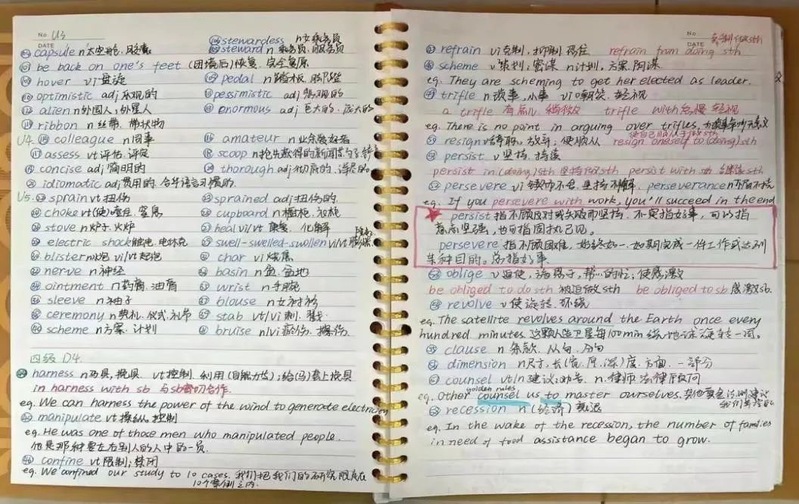 No. U3
DATE
capsule n 太空舱, 胶囊
stewardess n 女乘务员
steward n 乘务员, 服务员
be back on one's feet (困境后)恢复, 完全复原
hover vi 盘旋
pedal n 踏板, 脚踏
optimistic adj 乐观的
pessimistic adj 悲观的
alien n 外国人, 外星人
enormous adj 巨大的, 庞大的
ribbon n 丝带, 带状物
U4. colleague n 同事
amateur n 业余爱好者
assess vt 评估, 评定
scoop n 抢先获得的新闻
concise adj 简明的
thorough adj 彻底的, 详尽的
idiomatic adj 惯用的, 合乎语言习惯的
U5. sprain vt 扭伤
sprained adj 扭伤的
choke vt(使)噎住, 窒息
cupboard n 橱柜, 衣柜
stove n 炉子, 火炉
heal vi/vt 康复, 化解
electric shock 触电, 电休克
swell-swelled-swollen vi/vt
blister n 水泡 vi/vt 起泡
char vi 烧焦
nerve n 神经
basin n 盆, 盆地
ointment n 药膏, 油膏
wrist n 手腕
sleeve n 袖子
blouse n 女衬衫
ceremony n 典礼, 仪式, 礼节
stab vt/vi 刺, 戳
scheme n 方案, 计划
bruise n/vi 瘀伤, 擦伤
四级 D4.
harness n 马具, 挽具 vt 控制, 利用(自然力等); 给(马)套上挽具
in harness with sb 与sb密切合作.
eg. We can harness the power of the wind to generate electricity
manipulate vt 操纵, 控制
eg. He was one of those men who manipulated people.
他是那种要左右别人的人中的一员.
confine vt 限制; 禁闭
eg. We confined our study to 10 cases. 我们把我们的研究限定在
10个案例之内.
No.
DATE
refrain vi 克制, 抑制 refrain from doing sth
scheme v 策划; 密谋 n 计划, 方案, 阴谋
eg. They are scheming to get her elected as leader.
trifle n 琐事, 小事 vi
a trifle 有点儿, 稍微 trifle with 怠慢, 轻视
eg. There is no point in arguing over trifles,
resign vt 辞职, 放弃; 使顺从 resign oneself to (doing) sth
persist v 坚持, 持续
persist in (doing) sth 坚持 persist with sth 继续 sth
persevere vi 坚持不懈 perseverance n
eg. If you persevere with work, you'll succeed in the end
persist 指不顾反对或失败而坚持, 不究指好事, 可以指
坚强, 也可指固执己见.
persevere 指不顾困难, 始终如一, 如期完成一件工作或达到
某种目的。多指好事.
oblige v 迫使, 施恩于, 帮…的忙, 使感激
be obliged to do sth 被迫做sth be obliged to sb 感激sb.
revolve v 使旋转, 环绕
eg. The satellite revolves around the Earth once every
hundred minutes. 这颗人造卫星每100min绕地球旋转一周.
clause n 条款, 从句, 分句
dimension n 尺寸, 长(宽, 厚, 深)度, 方面, 一部分
counsel vt/n 建议; 劝告 n. 律师, 法律顾问
golden rules
eg. Other counsel us to master ourselves.
recession n (经济) 衰退
eg. In the wake of the recession, the number of families
in need of food assistance began to grow.